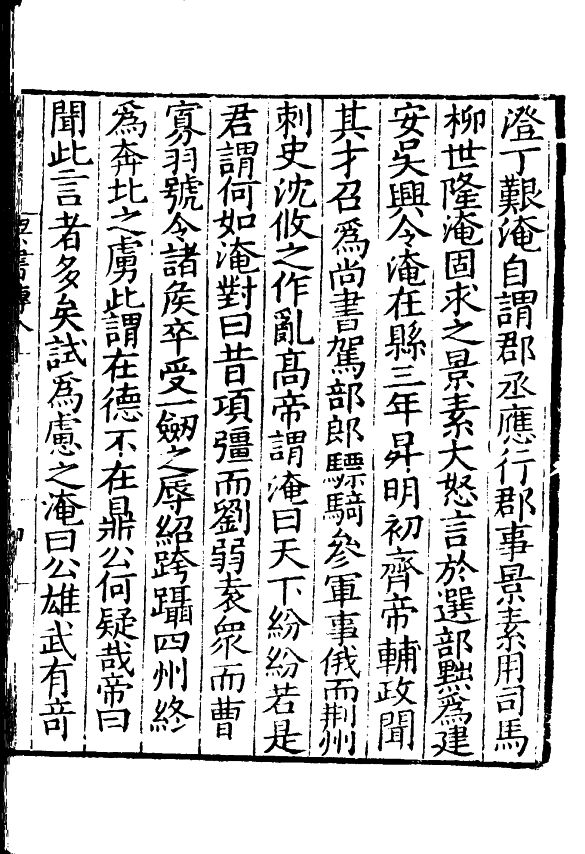 澄丁艱淹自謂郡丞應行郡事景素用司馬
柳世隆淹固求之景素大怒言於選部黜爲建
安吳興令淹在縣三年昇明初齊帝輔政聞
其才召爲尚書駕部郎驃騎參軍事俄而荆州
刺史沈攸之作亂高帝謂淹曰天下紛紛若是
君謂何如淹對曰昔項彊而劉弱袁衆而曹
寡羽號令諸侯卒受一劒之辱紹跨躡四州終
爲奔北之虜此謂在德不在鼎公何疑哉帝曰
聞此言者多矣試爲慮之淹曰公雄武有竒